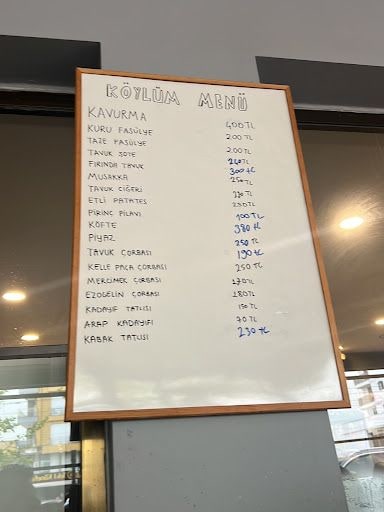 KÖYLÜM MENÜ
KAVURMA 400 TL
KURU FASÜLYE 200 TL
TAZE FASÜLYE 200 TL
TAVUK SOTE 240 TL
FIRINDA TAVUK 300 TL
MUSAKKA 250 TL
TAVUK CİĞERİ 230 TL
ETLİ PATATES 250 TL
PİRİNÇ PİLAVI 100 TL
KÖFTE 380 TL
PİYAZ 250 TL
TAVUK ÇORBASI 190 TL
KELLE PAÇA ÇORBASI 250 TL
MERCİMEK ÇORBASI 170 TL
EZOGELİN ÇORBASI 180 TL
KADAYIF TATLISI 150 TL
ARAP KADAYIFI 70 TL
KABAK TATLISI 230 TL